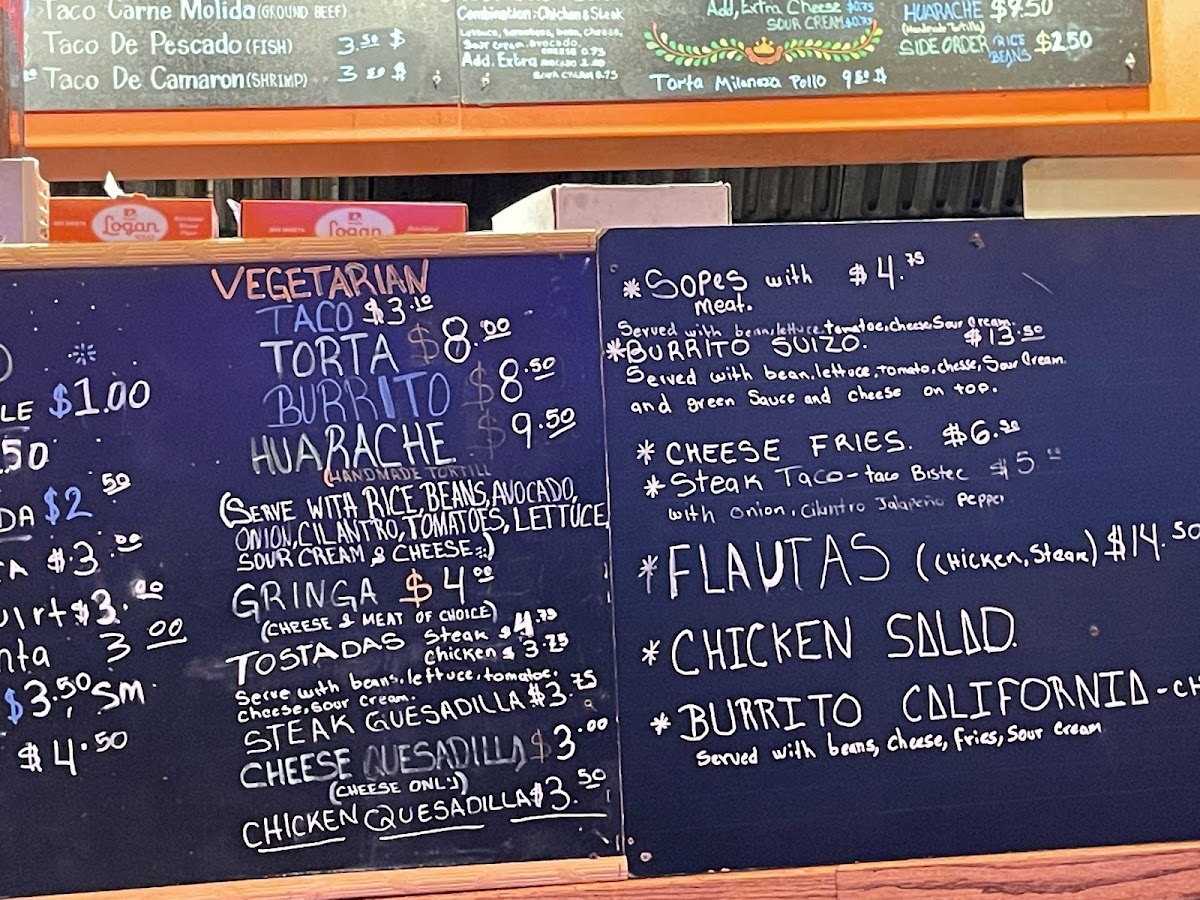 Taco Carne Molida (GROUND BEEF)
Taco De Pescado (FISH) 3.50 $
Taco De Camaron (SHRIMP) 3 50 $
Combination: Chicken & Steak
Lettuce, tomatoes, bean, cheese,
Sour cream, avocado
CHEESE 0.75
Add, Extra
SOUR CREAM 0.75
Add, Extra Cheese $0.75
SOUR CREAM $0.75
Torta Milaneza Pollo 9 50 $
HUARACHE $9.50
(Handmade Tortilla)
SIDE ORDER RICE BEANS $2.50
Logan
Logan
LE $1.00
50
DA $2 50
TA $3.00
uirt $3.00
nta 3 00
$3.50 SM
$4.50
VEGETARIAN
TACO $3.10
TORTA $8.00
BURRITO $8.50
HUARACHE $9.50
(HANDMADE TORTILL
(SERVE WITH RICE, BEANS, AVOCADO,
ONION, CILANTRO, TOMATOES, LETTUCE,
SOUR CREAM & CHEESE.)
GRINGA $4.00
(CHEESE & MEAT OF CHOICE)
TOSTADAS Steak $4.75
chicken $3.25
Serve with beans, lettuce, tomatoe,
cheese, sour cream.
STEAK QUESADILLA $3.75
CHEESE QUESADILLA $3.00
(CHEESE ONLY)
CHICKEN QUESADILLA $3.50
* SOPES with $4.75
meat.
Served with bean, lettuce, tomatoe, cheese, Sour Cream.
* BURRITO SUIZO. $13.50
Served with bean, lettuce, tomato, chesse, Sour Cream.
and green Sauce and cheese on top.
* CHEESE FRIES. $6.50
* Steak Taco - taco Bistec $5
with onion, cilantro Jalapeño Pepper
* FLAUTAS (Chicken, Steak) $14.50
* CHICKEN SALAD.
* BURRITO CALIFORNIA - CH
Served with beans, cheese, fries, sour cream